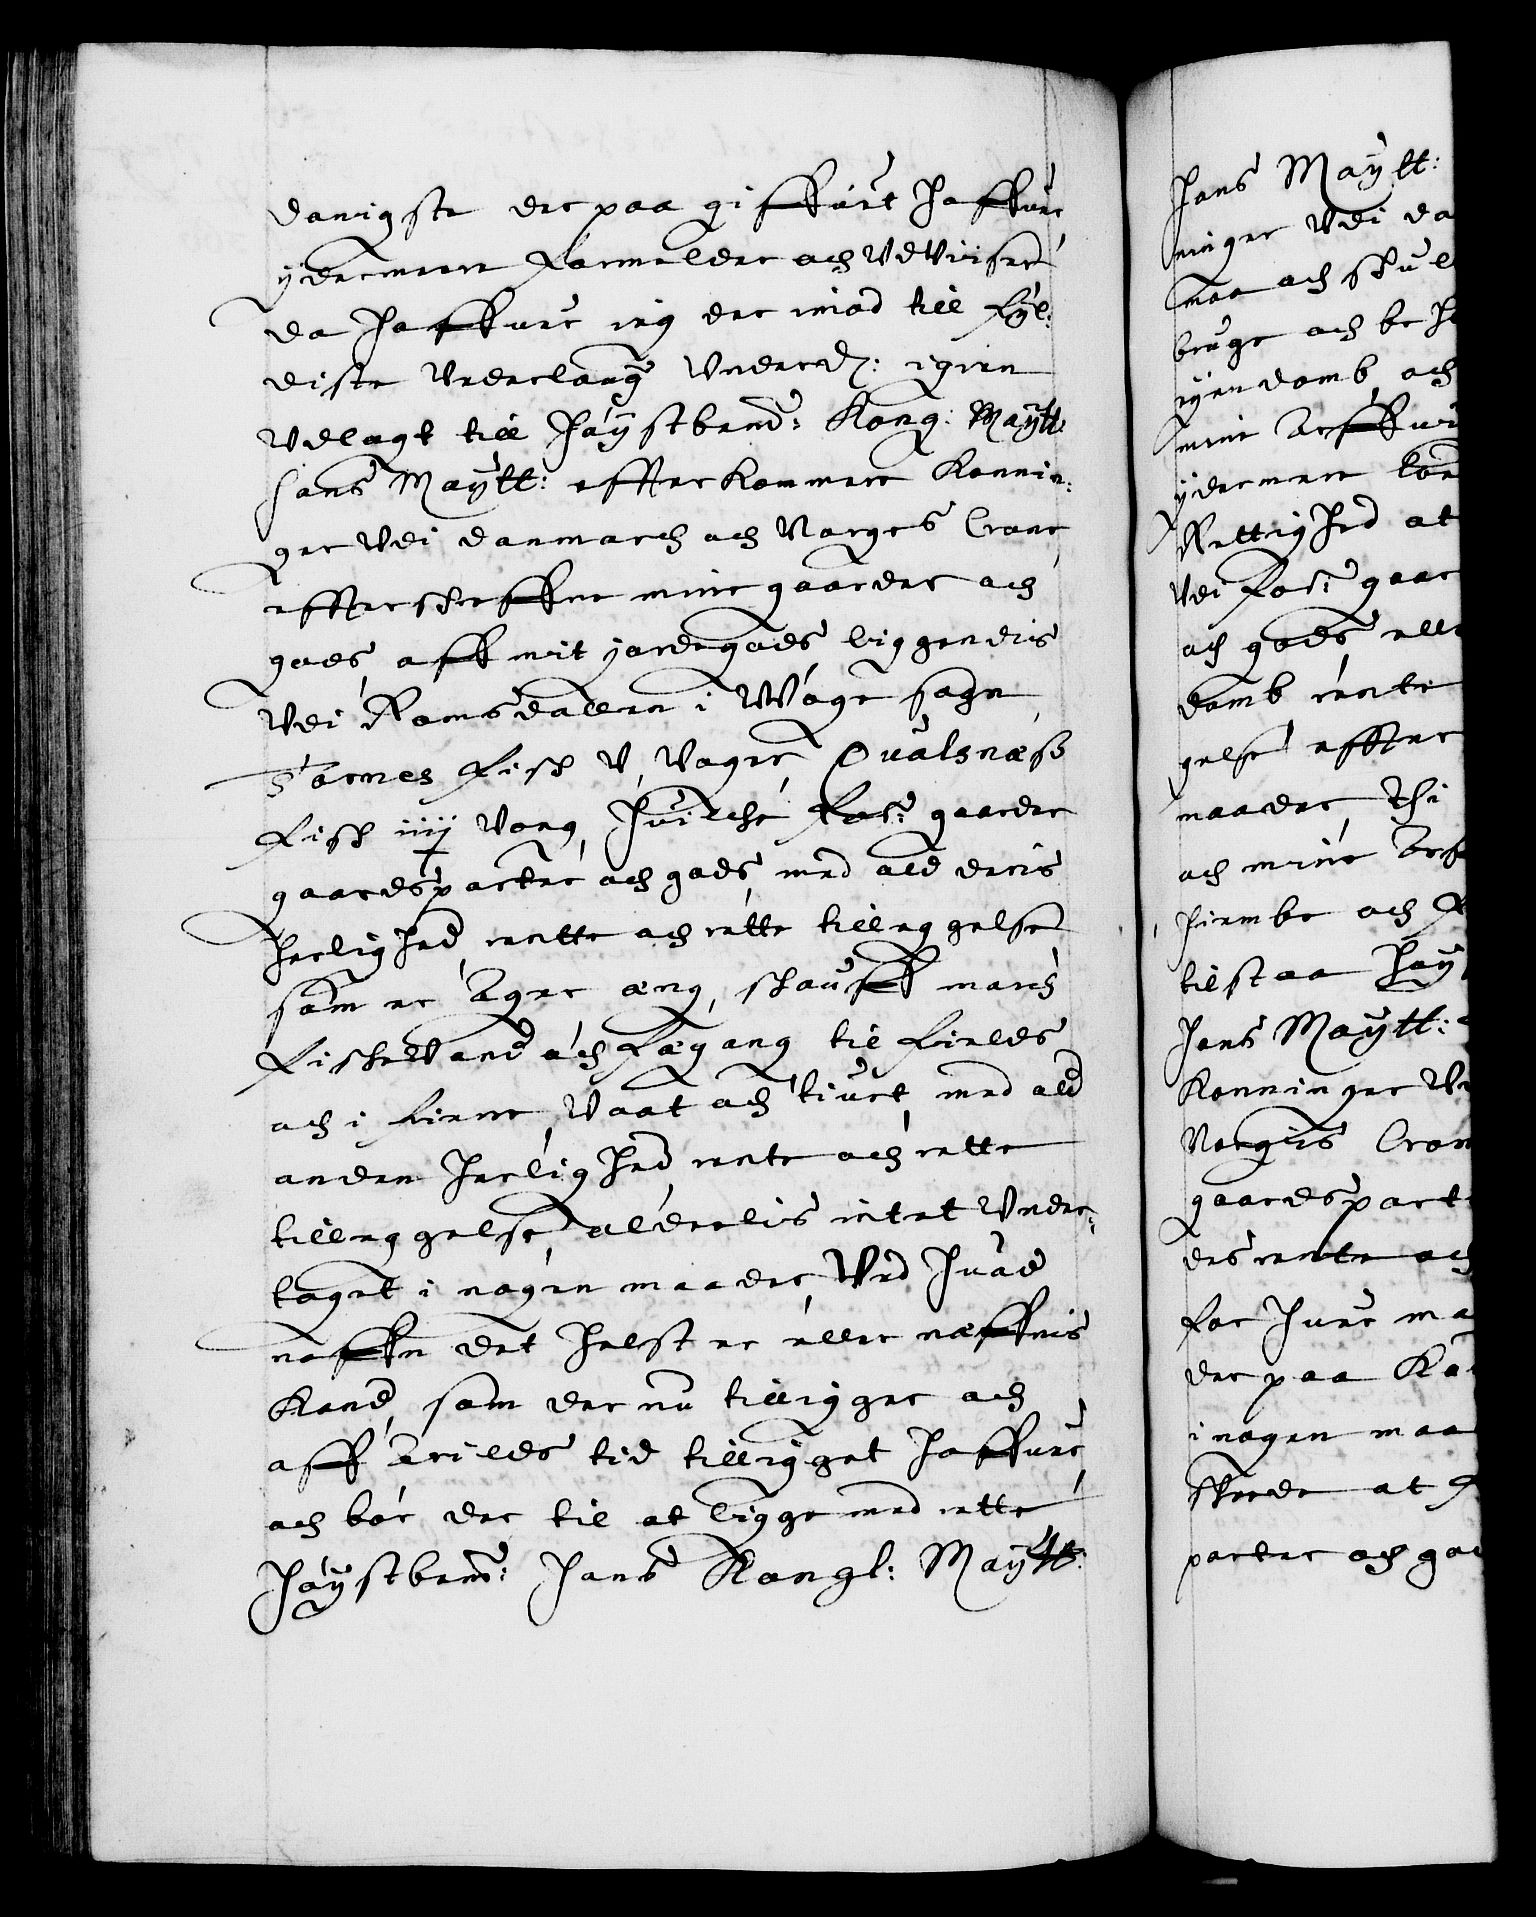 danigste der paa giffuet haffuer
ydermeere formelder och Vduiiser
da haffuer ieg der imod till fyl:
diste Vederlaug Vnderd: igien
Vdlagt till höystbemt: Kong: Maytt:
Hans Maytt: efterkommere Konnin:
ger Vdi danmarch och Norges Crone
efterschreffne mine gaarder och
gods, aff mit jordegods liggendis
Vdi Romsdallen i Waage sogn
Tornes fisch V, Voger, Qualsnæss
fisch iiij Vong, huilche for: gaarder
gaardsparter och gods, med ald deris
herlighed, rentte och rette tilleggelse
som er Ager æng, schouff march
fischeVand och fægang til fields
och i fiere, Vaat och tiurt, med ald
anden herlighed, rente och rette
tilleggelse, alderelis intet Vnder:
taget i nogen maader, Ved huad
naffn det helst er eller næffnis
Kand, som der nu tilligger och
aff Arilds tid tilligget haffuer
och bør der til at ligge med rette
Höystbemt: Hans Kongl: Maytt:
Hans Maytt:
ninger Vdi da
maa och skull
bruge och beh
eyendomb, och
mine Arffui
ydermere
Rettighed at
Vdi for: gaar
och gods, elle
domb rente
gelse efter
maader, Thi
och mine Arf
hiembe och
tilstaa höy
Hans Maytt:
Konninger V
Norgis Cron
gaardspart
des rente och
for huer ma
der paa Ka
i nogen maa
skeede at
parter och go